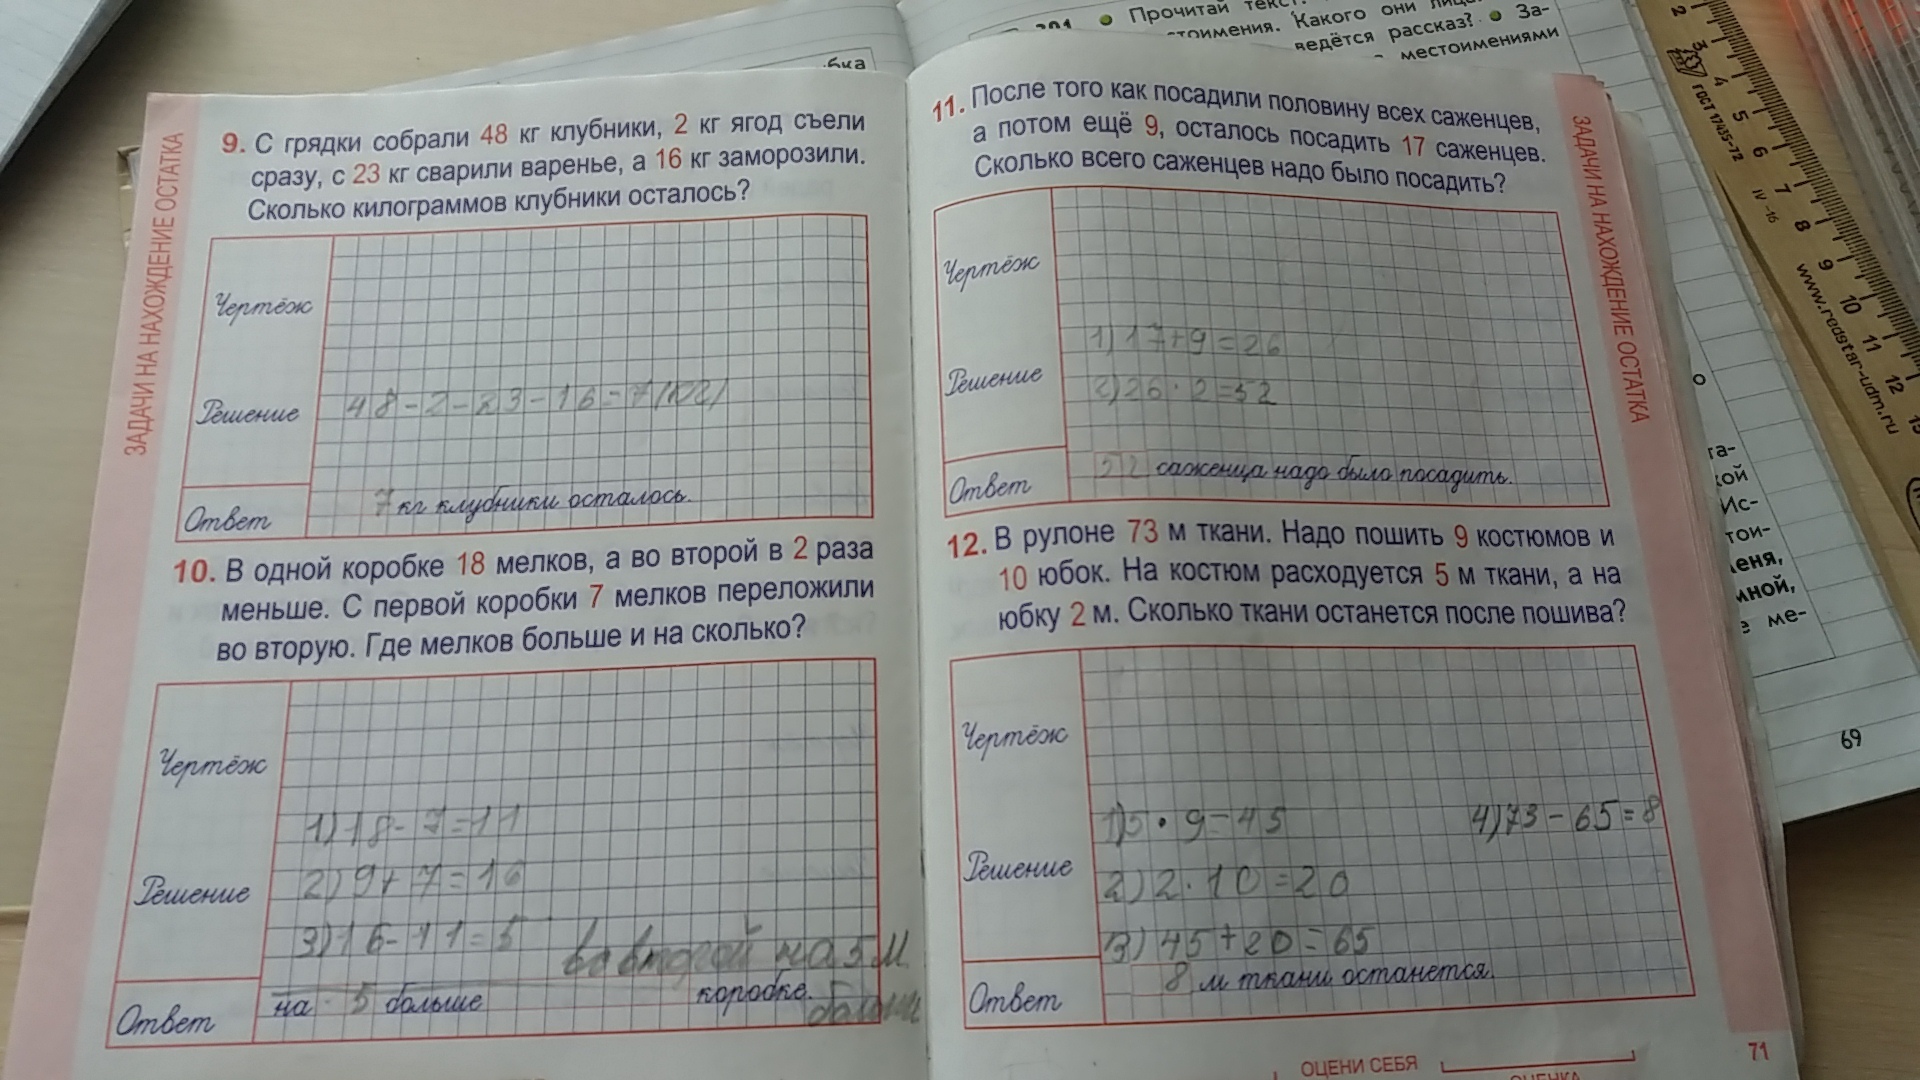 201 Прочитай текст.
стоимения. Какого они лица?
ведётся рассказ? За-
местоимениями
бка
ЗАДАЧИ НА НАХОЖДЕНИЕ ОСТАТКА
9. С грядки собрали 48 кг клубники, 2 кг ягод съели
сразу, с 23 кг сварили варенье, а 16 кг заморозили.
Сколько килограммов клубники осталось?
Чертёж
Решение
48-2-23-16=7(кг)
Ответ
7 кг клубники осталось.
10. В одной коробке 18 мелков, а во второй в 2 раза
меньше. С первой коробки 7 мелков переложили
во вторую. Где мелков больше и на сколько?
Чертёж
Решение
1) 18-7=11
2) 9+7=16
3) 16-11=5
во второй на 5 м
больше
Ответ
на 5 больше коробке.
11. После того как посадили половину всех саженцев,
а потом ещё 9, осталось посадить 17 саженцев.
Сколько всего саженцев надо было посадить?
Чертёж
Решение
1) 17+9=26
2) 26·2=52
Ответ
52 саженца надо было посадить.
12. В рулоне 73 м ткани. Надо пошить 9 костюмов и
10 юбок. На костюм расходуется 5 м ткани, а на
юбку 2 м. Сколько ткани останется после пошива?
Чертёж
Решение
1) 5·9=45
4) 73-65=8
2) 2·10=20
3) 45+20=65
Ответ
8 м ткани останется.
ЗАДАЧИ НА НАХОЖДЕНИЕ ОСТАТКА
71
ОЦЕНИ СЕБЯ
ОЦЕНКА
та-
кой
Ис-
тои-
меня,
мной,
е ме-
69
2 3 4 5 6 7 8 9 10 11 12 13
ГОСТ 17435-72
IV -16
www.redstar-udm.ru